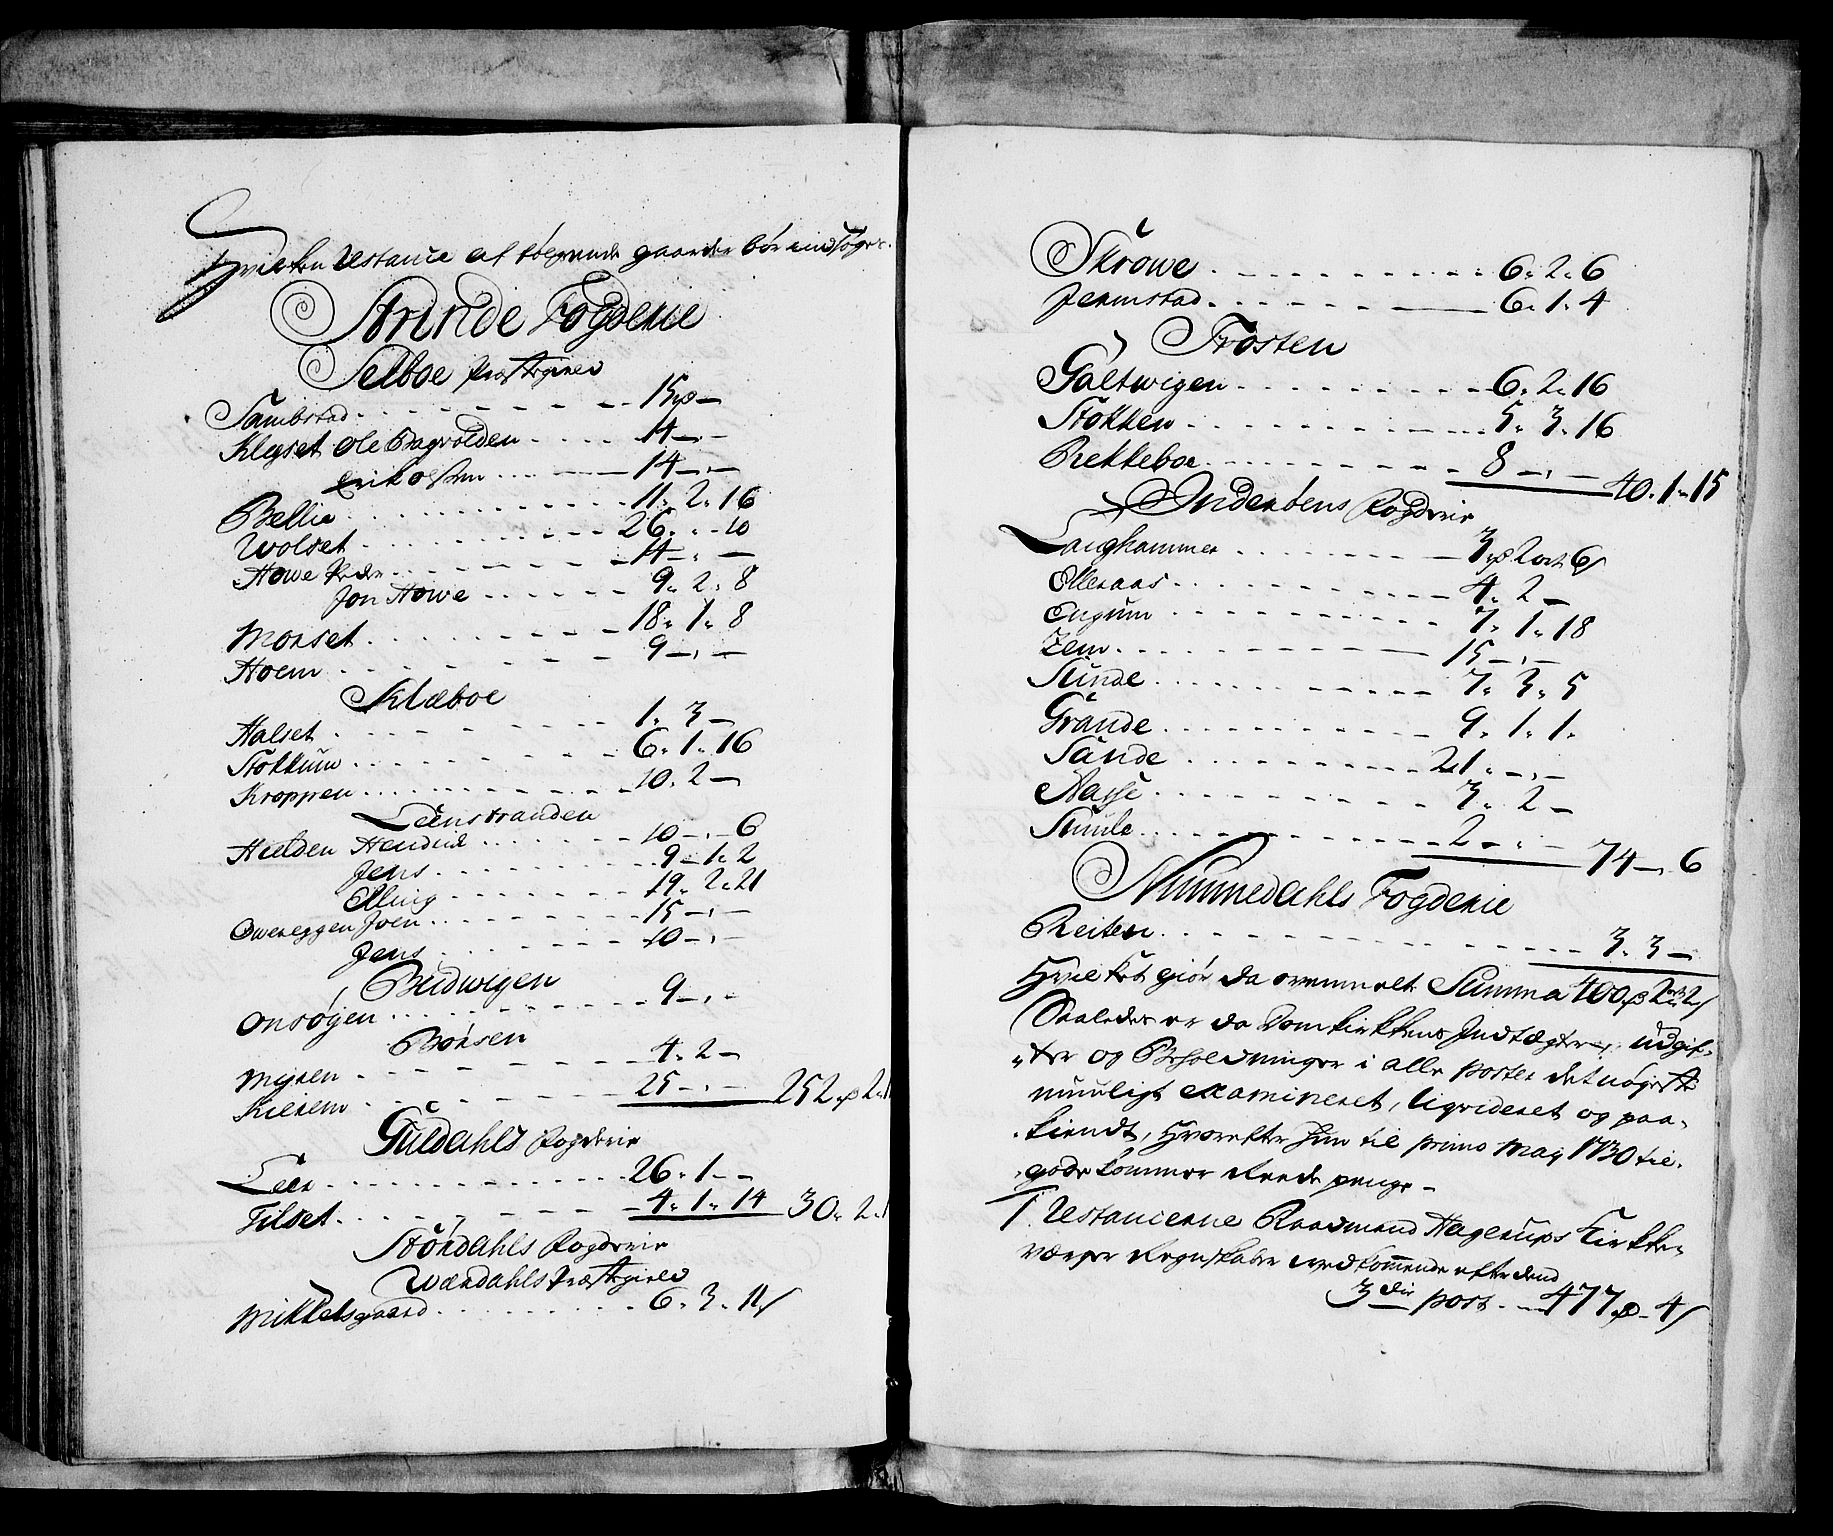 Hvilken Restance af følgende gaarder bør indsøges.
Strinde Fogderie
Selboe Præstegield
Sambstad 15 —
Klegset Ole Ingvolden 14 —
Erik Olsen 14 —
Bellie 11. 2. 16
Wolset 26. . 10
Howe Peder 14 —
Jon Howe 9. 2. 8
Morset 18. 1. 8
Hoem 9 —
Klæboe
Halset 1. 3 —
Stokkum 6. 1. 16
Kroppen 10. 2 —
Leenstranden
Hulden Hendrich 10 — 6
Jens 9 — 1. 2
Elling 19. 2. 21
Owereggen Joen 15 —
Jens 10 —
Budwigen
Onsøyen 9 —
Børsen
Myren 4. 2 —
Kierem 25 — 252. 2.
Guldahls Fogderie
Leer 26. 1 —
Tilset 4. 1. 14 30. 2.
Størdahls Fogderie
Wærdahls Præstegield
Mikkelsgaard 6. 3. 11
Skrowe 6. 2. 6
Jermstad 6. 1. 4
Frosten
Galtwigen 6. 2. 16
Stokken 5. 3. 16
Rekkeboe 8 — 40. 1. 15
Inderøens Fogderie
Langhammer 3 2 ort 6
Olleraas 4. 2 —
Engum 7. 1. 18
Zem 15 —
Sunde 7. 3. 5
Grande 9. 1. 1.
Sande 21. —
Nasse 3. 2 —
2 — 74 — 6
Nummedahls Fogderie
Reiten 3. 3 —
Hvilket giør da ovenmelt Summa 400 2 ort 2
Saaledes er da Domkirkkens Indtægter, udgif-
ter og Beholdninger i alle poster det nøyest
muuligt examineret, liqvideret og paa-
kiendt, Hvorefter hun til primo May 1730 til-
gode kommer Reede penge —
I Restancerne Raadmand Hagerups Kirkke-
værger Regnskaber vedkommende efter dend
3die post 477 — 4